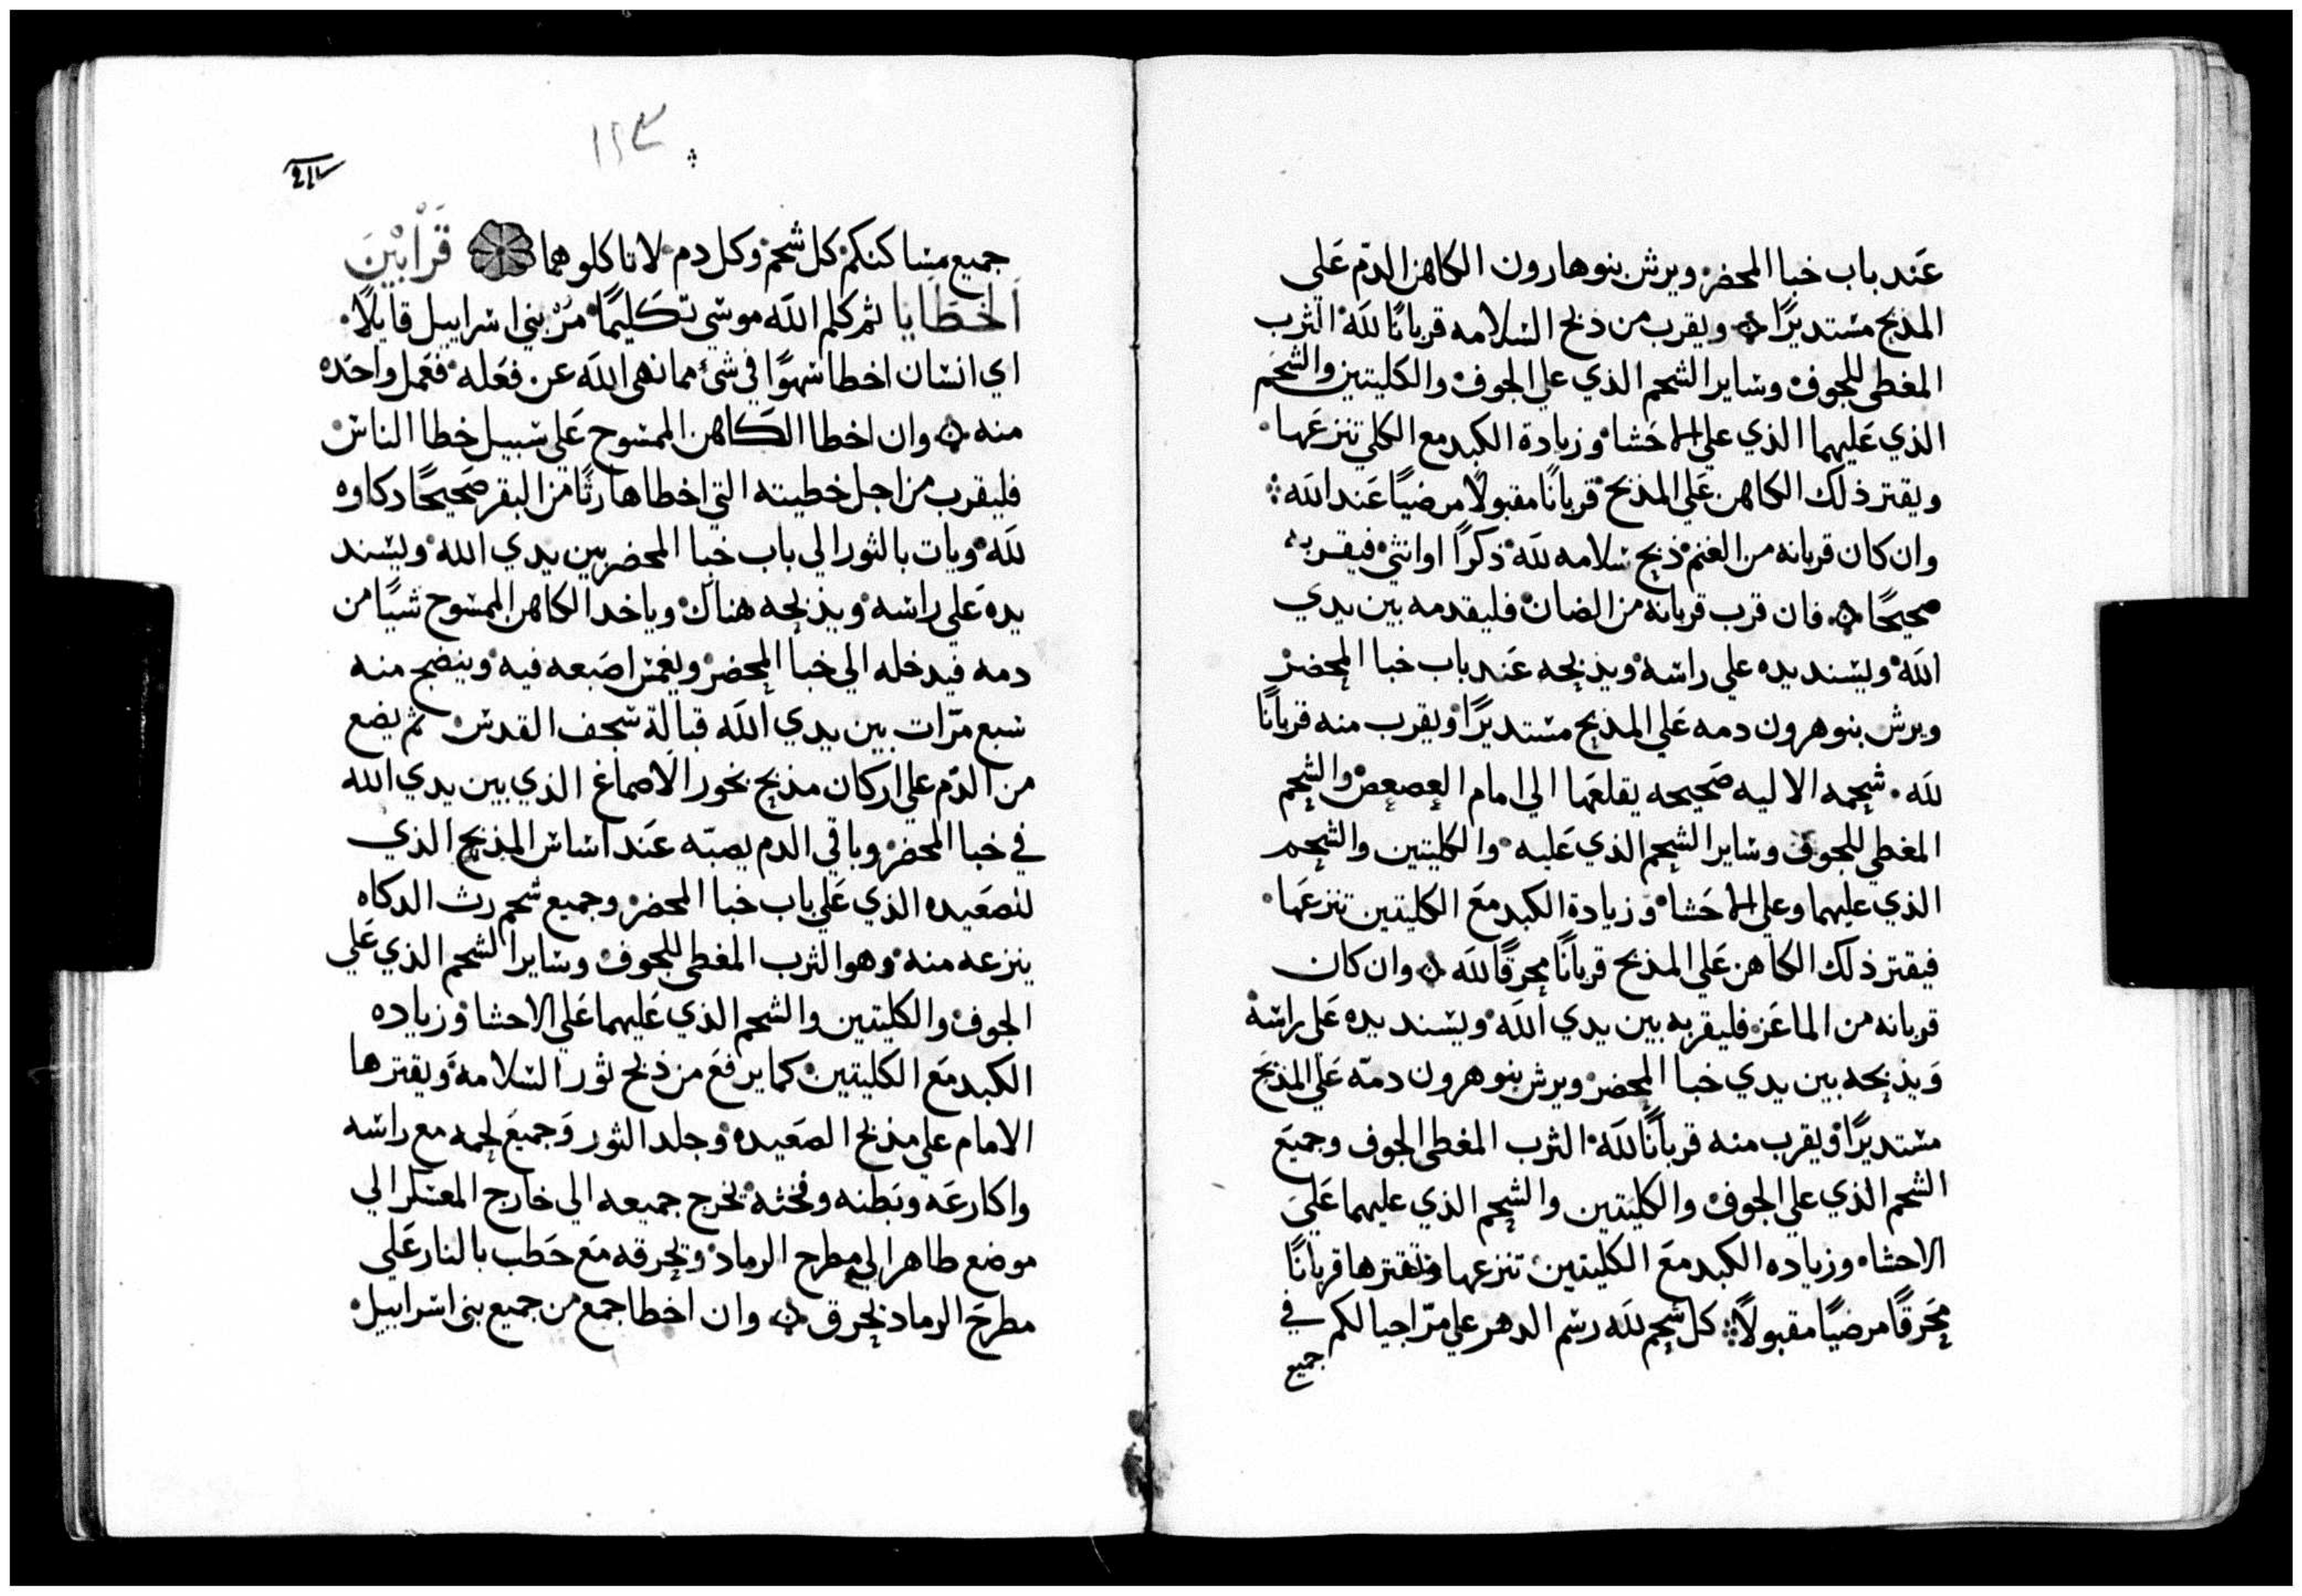 عَند باب خبا المحضر ويرش بنو هارون الكاهن الدّم عَلى
المذبح مستديرًا ويقرب من ذبح السلامه قربانًا لله الثرب
المغطي للجوف وساير الشحم الذي علي الجوف والكليتين والشحم
الذي عَليهما الذي علي الاحَشا وزيادة الكبد مع الكلي تنزعَها
ويقتر ذلك الكاهن عَلي المذبح قربانًا مقبولًا مرضيًا عَند الله
وان كان قربانه من الغنم ذبح سلامه لله ذكرًا او انثي فيقربه
صحيحًا فان قرب قربانه من الضان فليقدمه بين يدي
الله ويسند يده علي راسه ويذبحه عَند باب خبا المحضر
ويرش بنو هرون دمه عَلي المذبح مستديرًا ويقرب منه قربانًا
لله شحمه الاليه صَحيحه يقلعَها الي امام العصعص والشحم
المغطي للجوف وساير الشحم الذي عَليه والكليتين والشحم
الذي عليهما وعلي الاحَشا وزيادة الكبد معَ الكليتين تنزعَها
فيقتر ذلك الكاهن عَلي المذبح قربانًا محرقًا لله وان كان
قربانه من الماعَز فليقربه بين يدي الله ويسند يده عَلي راسه
وَيذبحه بين يدي خبا المحضر ويرش بنو هرون دمّه عَلي المذبَح
مستديرًا ويقرب منه قربانًا لله الثرب المغطي الجوف وجميعَ
الشحم الذي علي الجوف والكليتين والشحم الذي عليهما عَليَ
الاحشا وزياده الكبد معَ الكليتين تنزعها وتقترها قربانًا
مَحَرقًا مرضيًا مقبولًا كل شحم لله رسم الدهر علي مرّ اجيالكم في
جميع
١٢٣
جميع مساكنكم كل شحم وكل دم لا تاكلوهما قَرَابْينَ
الخَطَايا ثم كلم الله موسي تكليمًا مُرْ بني اسراييل قايلًا
اي انسان اخطا سَهوًا في شيء مما نهي الله عن فعَله فعَمل واحَده
منه وان اخطا الكَاهن الممسوح عَلي سبيل خطا الناس
فليقرب من اجل خطيته التي اخطاها رثًا من البقر صَحيحًا دكاوه
لله ويات بالثور الي باب خبا المحضر بين يدي الله ويسند
يده عَلي راسه ويذبحه هناك وياخد الكاهن الممسوح شيًا من
دمه فيدخله الي خبا المحضر ويغمس اصَبعه فيه وينضح منه
سبع مرّات بين يدي الله قبالة سجف القدس ثم يضع
من الدّم علي اركان مذبح بخور الاصماغ الذي بين يدي الله
في خبا المحضر وباقي الدم يصبّه عَند اساس المذبح الذي
لتصَعَيده الذي عَلي باب خبا المحضر وجميع شحم رث الدكاه
ينزعه منه وهو الثرب المغطي للجوف وساير الشحم الذي عَلي
الجوف والكليتين والشحم الذي عَليهما عَلي الاحشا وزياده
الكبد معَ الكليتين كما يرفعَ من ذبح ثور السلامه ويقترها
الامام علي مذبح الصَعَيده وجلد الثور وَجميعَ لحمه مع راسه
واكارعَه وبَطنه وفخثه يخرج جميعه الي خارج المعسكر الي
موضع طاهر الي مطرح الرماد ويحرقه معَ حَطب بالنار عَلي
مطرحَ الرماد يحرق وان اخطا جمع من جميع بني اسراييل